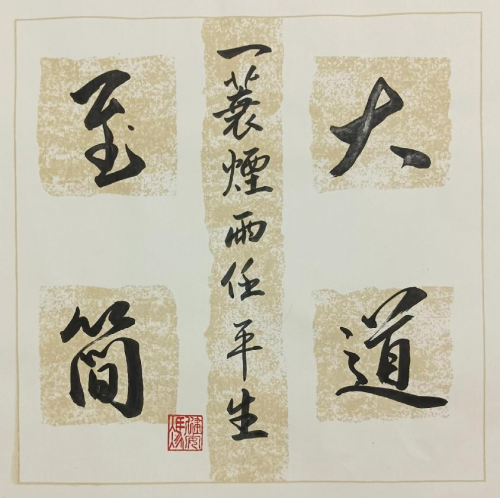 大道
一蓑煙雨任平生
至簡